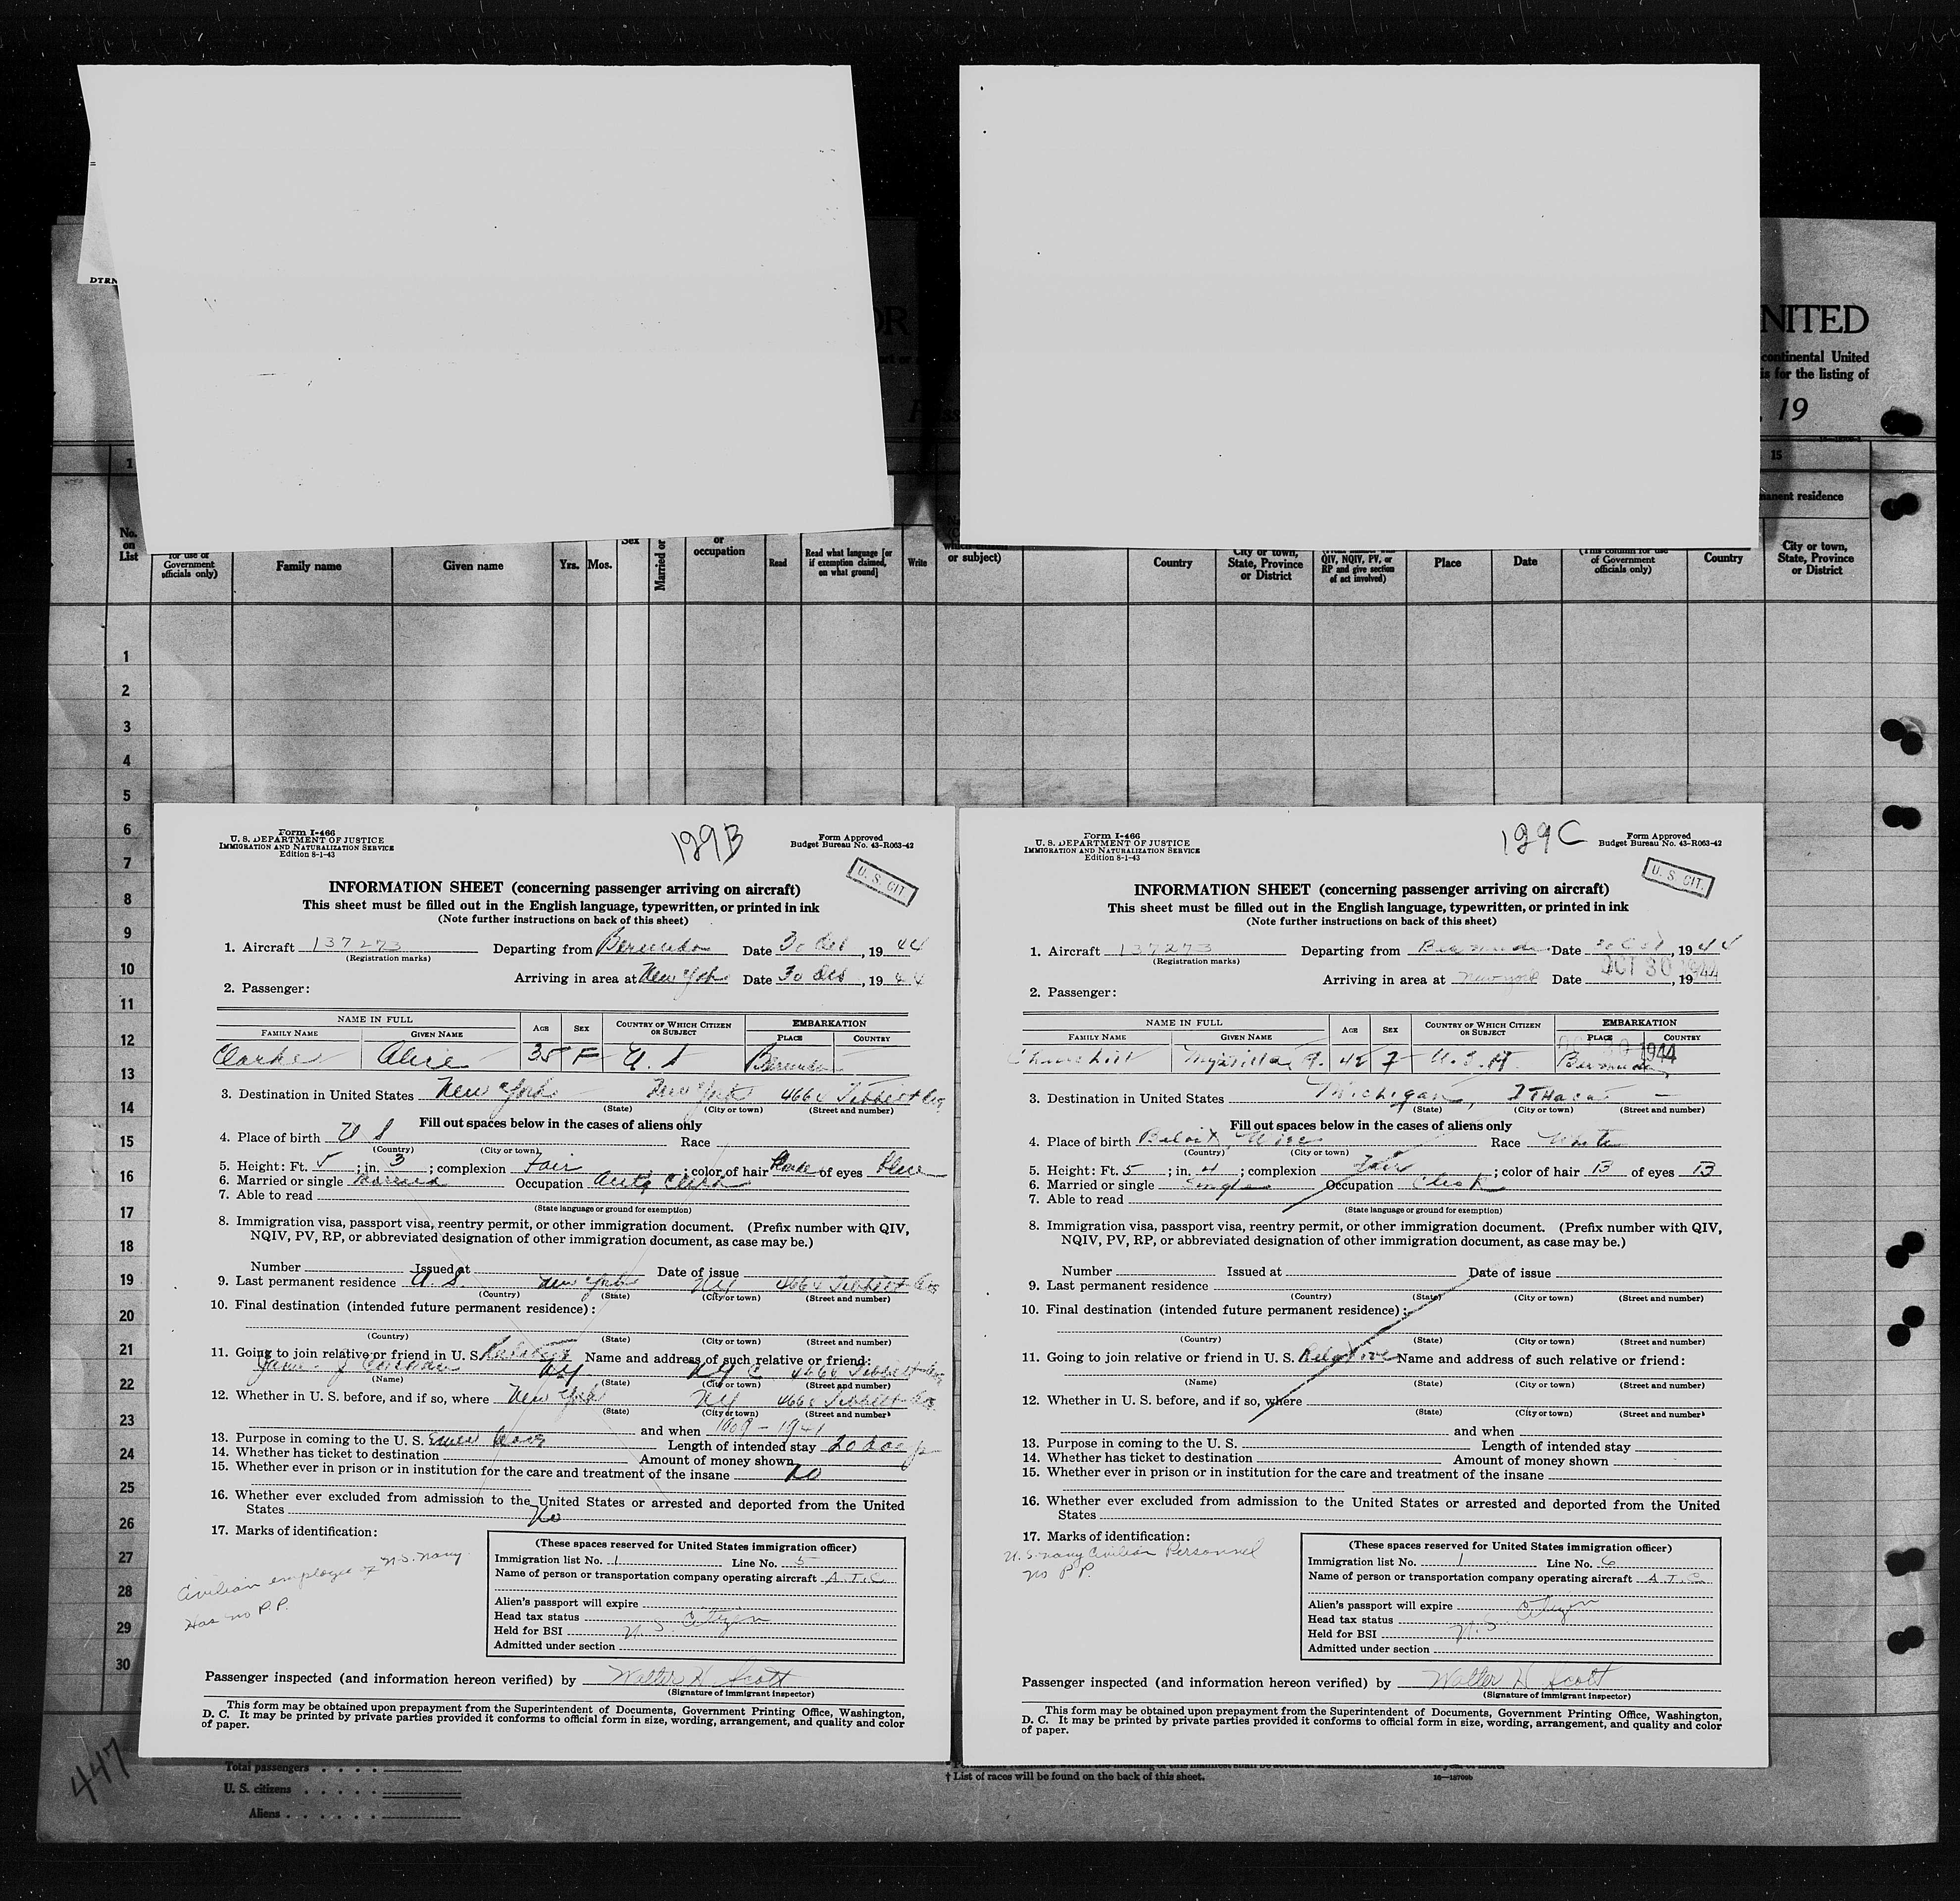 DTRN
OR
NITED
continental United
is for the listing of
, 19
1
15
manent residence
No.
on
List
for use of
Government
officials only)
Family name
Given name
Yrs.
Mos.
Sex
Married or
or
occupation
Read
Read what language [or
if exemption claimed,
on what ground]
Write
which citizen
or subject)
Country
City or town,
State, Province
or District
QIV, NQIV, PV, or
RP and give section
of act involved)
Place
Date
(This column for use
of Government
officials only)
Country
City or town,
State, Province
or District
1
2
3
4
5
6
7
8
9
10
11
12
13
14
15
16
17
18
19
20
21
22
23
24
25
26
27
28
29
30
447
Total passengers
U. S. citizens
Aliens
Form I-466
U. S. DEPARTMENT OF JUSTICE
IMMIGRATION AND NATURALIZATION SERVICE
Edition 8-1-43
129B
Form Approved
Budget Bureau No. 43-R063-42
U. S. CIT.
INFORMATION SHEET (concerning passenger arriving on aircraft)
This sheet must be filled out in the English language, typewritten, or printed in ink
(Note further instructions on back of this sheet)
1. Aircraft 137273 Departing from Bermuda Date 30 Oct, 1944
(Registration marks)
Arriving in area at New York Date 30 Oct, 1944
2. Passenger:
NAME IN FULL
FAMILY NAME GIVEN NAME AGE SEX COUNTRY OF WHICH CITIZEN OR SUBJECT EMBARKATION PLACE COUNTRY
Clarke Alice 35 F U. S Bermuda
3. Destination in United States New York New York 466 Tibbett Ave
(State) (City or town) (Street and number)
Fill out spaces below in the cases of aliens only
4. Place of birth U S Race
(Country) (City or town)
5. Height: Ft. 5; in. 3; complexion Fair; color of hair of eyes
6. Married or single Married Occupation Clerk
7. Able to read
(State language or ground for exemption)
8. Immigration visa, passport visa, reentry permit, or other immigration document. (Prefix number with QIV,
NQIV, PV, RP, or abbreviated designation of other immigration document, as case may be.)
Number Issued at Date of issue
9. Last permanent residence U. S. New York NY Tibbett Ave
(Country) (State) (City or town) (Street and number)
10. Final destination (intended future permanent residence):
(Country) (State) (City or town) (Street and number)
11. Going to join relative or friend in U. S. Name and address of such relative or friend:
James J NY NY C Tibbett Ave
(Name) (State) (City or town) (Street and number)
12. Whether in U. S. before, and if so, where New York NY Tibbett Ave
(State) (City or town) (Street and number)
and when 1909 - 1941
13. Purpose in coming to the U. S. Length of intended stay 20 days
14. Whether has ticket to destination Amount of money shown
15. Whether ever in prison or in institution for the care and treatment of the insane No
16. Whether ever excluded from admission to the United States or arrested and deported from the United
States No
17. Marks of identification:
Civilian employee of U.S. Navy
Has no P.P.
(These spaces reserved for United States immigration officer)
Immigration list No. 1 Line No. 5
Name of person or transportation company operating aircraft A.T.C.
Alien's passport will expire
Head tax status Citizen
Held for BSI U. S.
Admitted under section
Passenger inspected (and information hereon verified) by Walter H Scott
(Signature of immigrant inspector)
This form may be obtained upon prepayment from the Superintendent of Documents, Government Printing Office, Washington,
D. C. It may be printed by private parties provided it conforms to official form in size, wording, arrangement, and quality and color
of paper.
Form I-466
U. S. DEPARTMENT OF JUSTICE
IMMIGRATION AND NATURALIZATION SERVICE
Edition 8-1-43
129C
Form Approved
Budget Bureau No. 43-R063-42
U. S. CIT.
INFORMATION SHEET (concerning passenger arriving on aircraft)
This sheet must be filled out in the English language, typewritten, or printed in ink
(Note further instructions on back of this sheet)
1. Aircraft 137273 Departing from Bermuda Date 30 Oct, 1944
(Registration marks)
Arriving in area at New York Date OCT 30 1944, 19
2. Passenger:
NAME IN FULL
FAMILY NAME GIVEN NAME AGE SEX COUNTRY OF WHICH CITIZEN OR SUBJECT EMBARKATION PLACE COUNTRY
Churchill 45 F U.S.A. Bermuda 1944
3. Destination in United States Michigan, Ithaca —
(State) (City or town) (Street and number)
Fill out spaces below in the cases of aliens only
4. Place of birth Beloit, Wisc Race White
(Country) (City or town)
5. Height: Ft. 5; in. 4; complexion Fair; color of hair B of eyes B
6. Married or single Single Occupation Clerk
7. Able to read
(State language or ground for exemption)
8. Immigration visa, passport visa, reentry permit, or other immigration document. (Prefix number with QIV,
NQIV, PV, RP, or abbreviated designation of other immigration document, as case may be.)
Number Issued at Date of issue
9. Last permanent residence
(Country) (State) (City or town) (Street and number)
10. Final destination (intended future permanent residence):
(Country) (State) (City or town) (Street and number)
11. Going to join relative or friend in U. S. Relative Name and address of such relative or friend:
(Name) (State) (City or town) (Street and number)
12. Whether in U. S. before, and if so, where
(State) (City or town) (Street and number)
and when
13. Purpose in coming to the U. S. Length of intended stay
14. Whether has ticket to destination Amount of money shown
15. Whether ever in prison or in institution for the care and treatment of the insane
16. Whether ever excluded from admission to the United States or arrested and deported from the United
States
17. Marks of identification:
U. S. Navy Civilian Personnel
No P.P.
(These spaces reserved for United States immigration officer)
Immigration list No. 1 Line No. 6
Name of person or transportation company operating aircraft A.T.C.
Alien's passport will expire
Head tax status Citizen
Held for BSI U.S.
Admitted under section
Passenger inspected (and information hereon verified) by Walter H Scott
(Signature of immigrant inspector)
This form may be obtained upon prepayment from the Superintendent of Documents, Government Printing Office, Washington,
D. C. It may be printed by private parties provided it conforms to official form in size, wording, arrangement, and quality and color
of paper.
† List of races will be found on the back of this sheet.